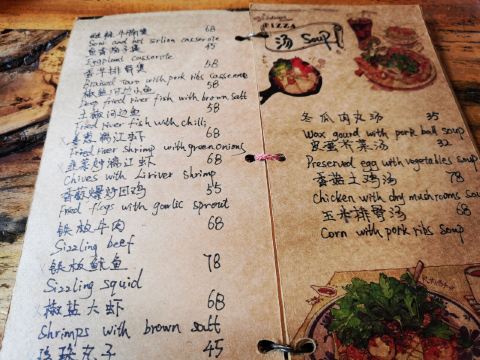 酸辣牛腩煲 68
Sour and hot sirloin casserole
鱼香茄子煲 45
Eggplant casserole
香芋排骨煲 58
Braised Taro with pork ribs casserole
椒盐河边小鱼 58
Deep fried river fish with brown salt
土椒河边鱼 58
Fried river fish with chilli
姜葱漓江虾 68
Fried river shrimp with green onions
韭菜炒漓江虾 68
Chives with Li river shrimp
香菇爆炒田鸡 55
Fried flogs with gaolic sprout
铁板牛肉 68
Sizzling beef
铁板鱿鱼 78
Sizzling squid
椒盐大虾 68
Shrimps with brown salt
丸子 45
PIZZA
汤 Soup!
冬瓜肉丸汤 35
Wax gourd with pork ball soup
皮蛋芥菜汤 32
Preserved egg with vegetables soup
香菇土鸡汤 78
Chicken with dry mushrooms sou
玉米排骨汤 68
Corn with pork ribs soup